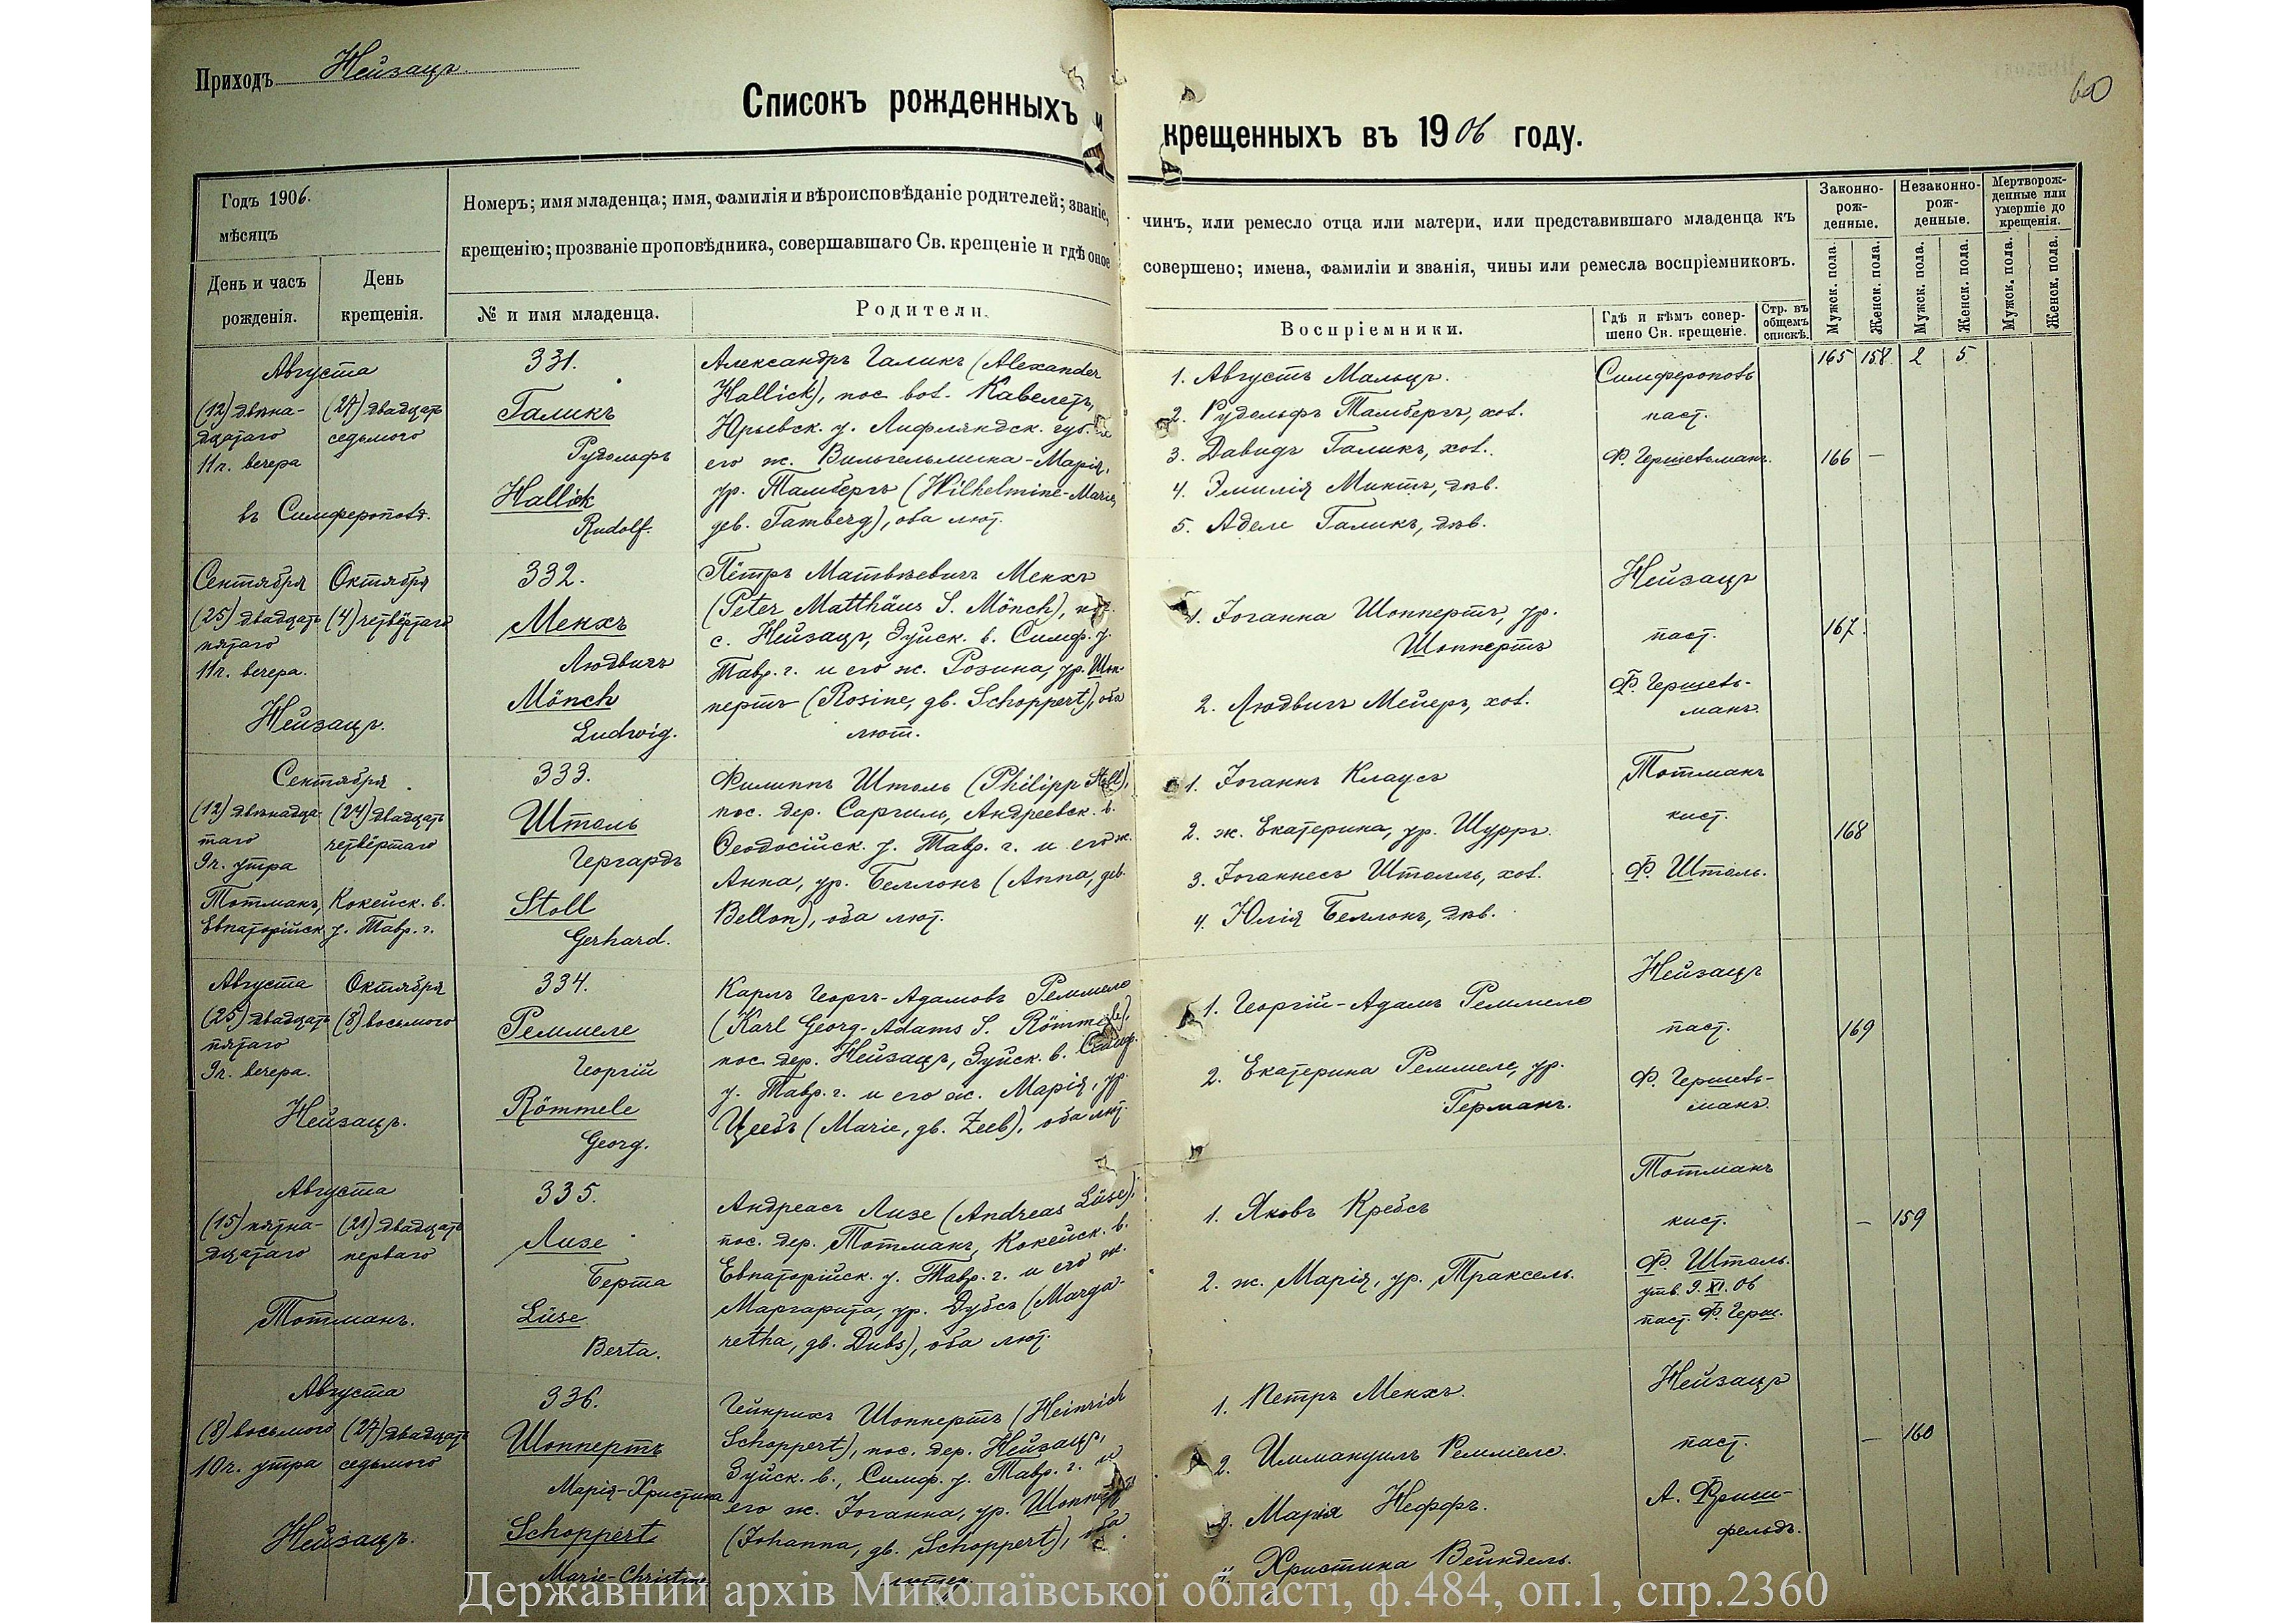 Приходъ Нейзацъ
60
Списокъ рожденныхъ и крещенныхъ въ 1906 году.
Годъ 1906.
мѣсяцъ
День и часъ рожденія.
День крещенія.
Номеръ; имя младенца; имя, фамилія и вѣроисповѣданіе родителей; званіе, чинъ, или ремесло отца или матери, или представившаго младенца къ
крещенію; прозваніе проповѣдника, совершавшаго Св. крещеніе и гдѣ оное совершено; имена, фамиліи и званія, чины или ремесла воспріемниковъ.
№ и имя младенца.
Родители.
Воспріемники.
Гдѣ и кѣмъ совершено Св. крещеніе.
Стр. въ общемъ спискѣ.
Законно-рожденные.
Незаконно-рожденные.
Мертворожденные или умершіе до крещенія.
Мужск. пола.
Женск. пола.
Мужск. пола.
Женск. пола.
Мужск. пола.
Женск. пола.
165 158. 2 5
Августа
(12) двѣна-
дцатаго
11 ч. вечера
(27) двадцать
седьмого
въ Симферополѣ.
331.
Галикъ
Рудольфъ
Hallick
Rudolf.
Александръ Галикъ (Alexander
Hallick), пос. вол. Кавелетъ,
Юрьевск. у. Лифляндск. губ. и
его ж. Вильгельмина-Марія,
ур. Тамбергъ (Wilhelmine-Marie,
geb. Tamberg), оба лют.
1. Августъ Мальцъ.
2. Рудольфъ Тамбергъ, хол.
3. Давидъ Галикъ, хол.
4. Эмилія Миктъ, дѣв.
5. Аделе Галикъ, дѣв.
Симферополь
паст.
Ф. Гершельманъ.
166 —
Сентября
(25) двадцать
пятаго
11 ч. вечера.
Октября
(4) четвёртаго
Нейзацъ.
332.
Менхъ
Людвигъ
Mönch
Ludwig.
Пётръ Матвѣевичъ Менхъ
(Peter Matthäus S. Mönch), пос.
с. Нейзацъ, Зуйск. в. Симф. у.
Тавр. г. и его ж. Розина, ур. Шоп-
пертъ (Rosine, gb. Schoppert), оба
лют.
1. Іоганна Шоппертъ, ур.
Шоппертъ
2. Людвигъ Мейеръ, хол.
Нейзацъ
паст.
Ф. Гершель-
манъ.
167.
Сентября
(12) двѣнадца-
таго
9 ч. утра
(24) двадцать
четвёртаго
Тотманъ, Кокейск. в.
Евпаторійск. у. Тавр. г.
333.
Штоль
Гергардъ
Stoll
Gerhard.
Филиппъ Штоль (Philipp Stoll),
пос. дер. Саргилъ, Андреевск. в.
Ѳеодосійск. у. Тавр. г. и его ж.
Анна, ур. Беллонъ (Anna, geb.
Bellon), оба лют.
1. Іоганнъ Клаусъ
2. ж. Екатерина, ур. Шурръ.
3. Іоганнесъ Штолль, хол.
4. Юлія Беллонъ, дѣв.
Тотманъ
кист.
Ф. Штоль.
168
Августа
(25) двадцать
пятаго
9 ч. вечера.
Октября
(8) восьмого
Нейзацъ.
334.
Реммеле
Георгій
Römmele
Georg.
Карлъ Георгъ-Адамовъ Реммеле
(Karl Georg-Adams S. Römmele),
пос. дер. Нейзацъ, Зуйск. в. Симф.
у. Тавр. г. и его ж. Марія, ур.
Цеебъ (Marie, gb. Zeeb), оба лют.
1. Георгій-Адамъ Реммеле
2. Екатерина Реммеле, ур.
Германъ.
Нейзацъ
паст.
Ф. Гершель-
манъ.
169
Августа
(15) пятна-
дцатаго
(21) двадцать
перваго
Тотманъ.
335.
Лизе
Берта
Lüse
Berta.
Андреасъ Лизе (Andreas Lüse),
пос. дер. Тотманъ, Кокейск. в.
Евпаторійск. у. Тавр. г. и его ж.
Маргарита, ур. Дубсъ (Marga-
retha, gb. Dubs), оба лют.
1. Яковъ Кребсъ
2. ж. Марія, ур. Траксель.
Тотманъ
кист.
Ф. Штоль.
утв. 9. XI. 06
паст. Ф. Герш.
— 159
Августа
(8) восьмого
10 ч. утра
(27) двадцать
седьмого
Нейзацъ.
336.
Шоппертъ
Марія-Христина
Schoppert
Marie-Christine
Гейнрихъ Шоппертъ (Heinrich
Schoppert), пос. дер. Нейзацъ,
Зуйск. в., Симф. у. Тавр. г. и
его ж. Іоганна, ур. Шоппертъ
(Johanna, gb. Schoppert), оба
лютер.
1. Петръ Менхъ.
2. Иммануилъ Реммеле.
3. Марія Неффъ.
4. Христина Вейндель.
Нейзацъ
паст.
А. Фриш-
фельдъ.
— 160
Державний архів Миколаївської області, ф.484, оп.1, спр.2360